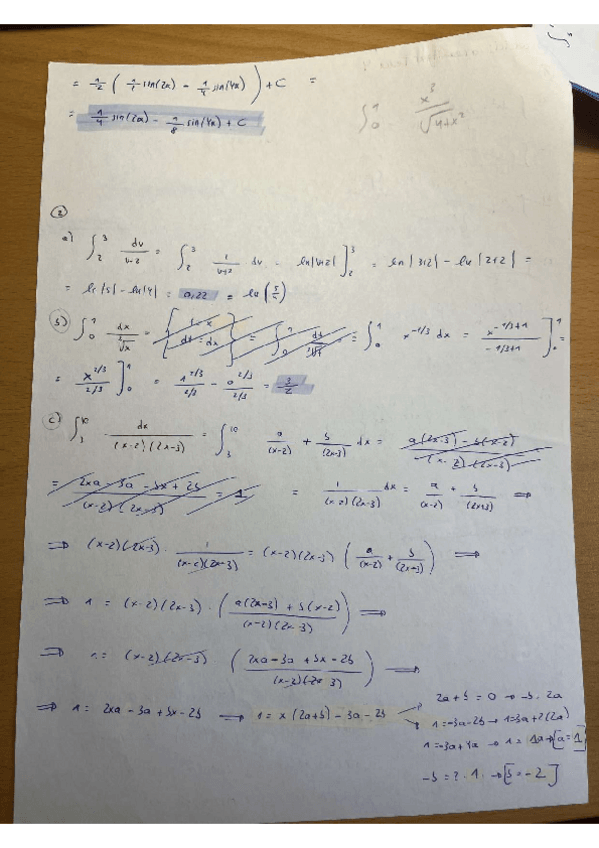 = 1/2 ( 1/2 sin(2x) - 1/4 sin(4x) ) + C =
∫₀¹ x³/√(4+x²)
= 1/4 sin(2x) - 1/8 sin(4x) + C
②
a) ∫₂³ dv/v+2 = ∫₂³ 1/v+2 dv = ln|v+2| ]₂³ = ln|3+2| - ln|2+2| =
= ln|5| - ln|4| = 0,22 = ln(5/4)
b) ∫₀¹ dx/∛x = = ∫₀¹ x^-1/3 dx = x^-1/3+1 / -1/3+1 ]₀¹ =
= x^2/3 / 2/3 ]₀¹ = 1^2/3 / 2/3 - 0^2/3 / 2/3 = 3/2
c) ∫₃¹⁰ dx/(x-2)(2x-3) = ∫₃¹⁰ a/(x-2) + b/(2x-3) dx = a(2x-3) - b(x-2) / (x-2)(2x-3)
= 2xa - 3a - bx + 2b / (x-2)(2x-3) = 1 = 1/(x-2)(2x-3) dx = a/(x-2) + b/(2x-3) ⇒
⇒ (x-2)(2x-3) · 1/(x-2)(2x-3) = (x-2)(2x-3) ( a/(x-2) + b/(2x-3) ) ⇒
⇒ 1 = (x-2)(2x-3) · ( a(2x-3) + b(x-2) / (x-2)(2x-3) ) ⇒
⇒ 1 = (x-2)(2x-3) ( 2xa - 3a + bx - 2b / (x-2)(2x-3) ) ⇒
⇒ 1 = 2xa - 3a + bx - 2b → 1 = x(2a+b) - 3a - 2b
2a + b = 0 → -b = 2a
1 = -3a - 2b → 1 = -3a + 2(2a)
1 = -3a + 4a → 1 = 1a → [a = 1]
-b = 2 · 1 → [b = -2]